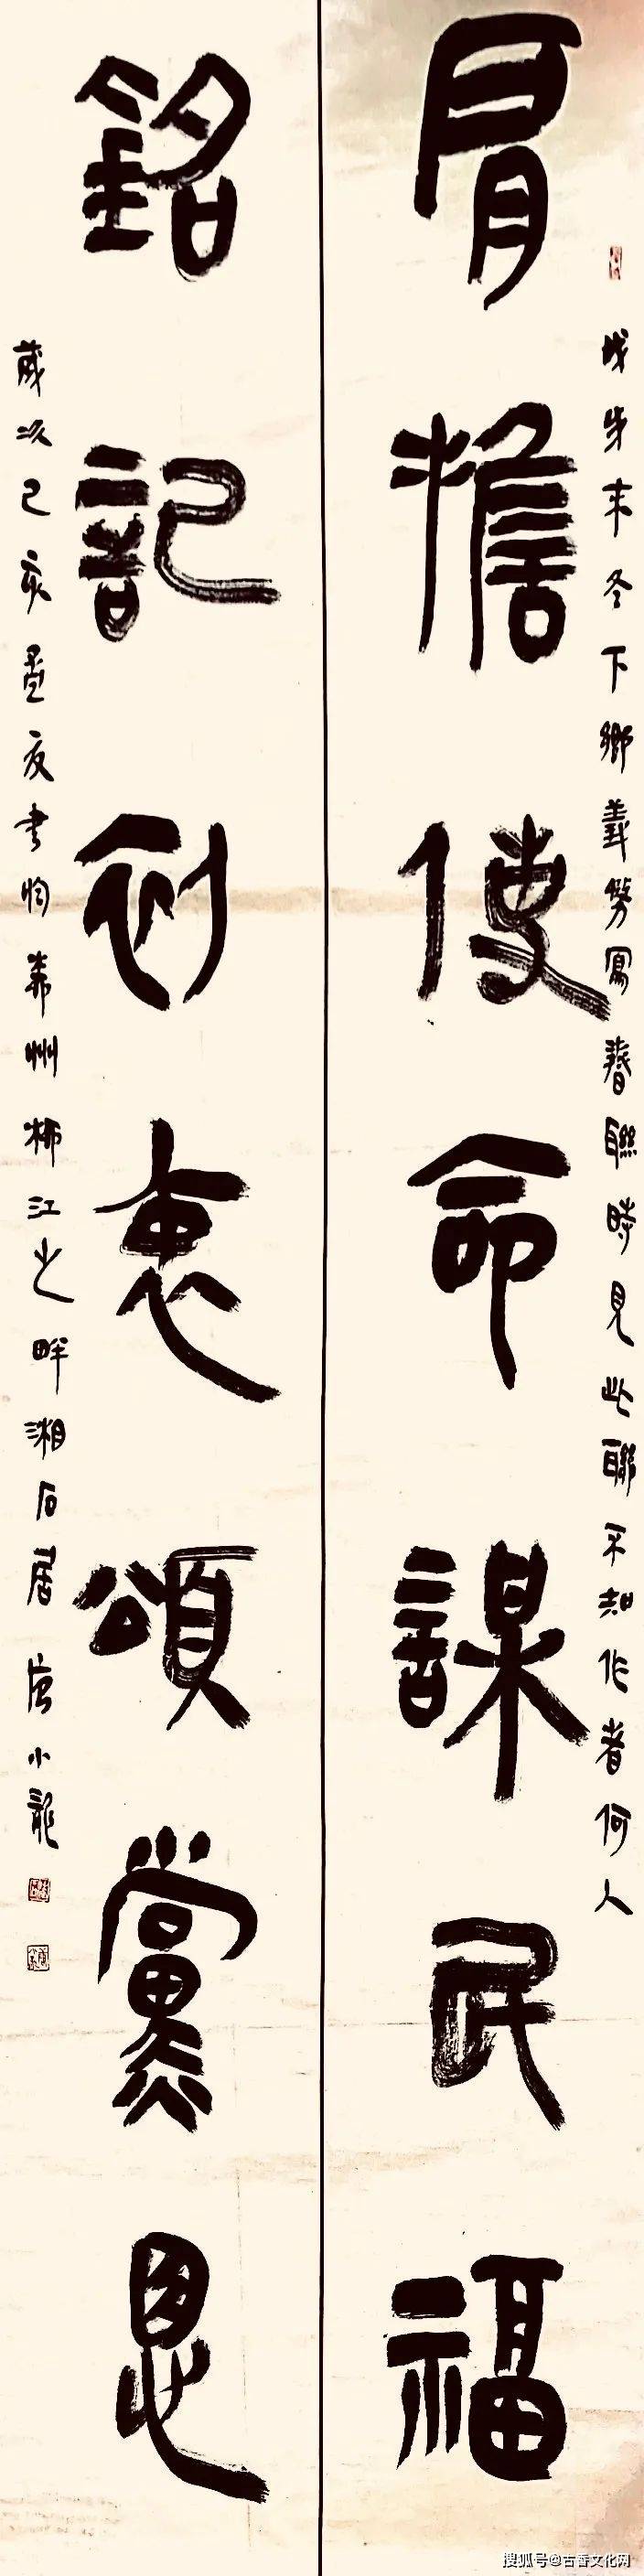 戊戌末冬下鄉義務寫春聯時見此聯不知作者何人
肩擔使命謀民福
銘記初衷頌黨恩
歲次己亥孟夏書於州江之畔湘石居唐小龍
搜狐号@古香文化网